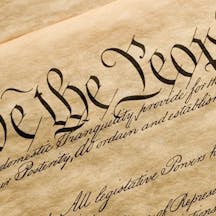 We the People
domestic Tranquility, provide for the
our Posterity, do ordain and establish
All legislative Powers h
of Represen